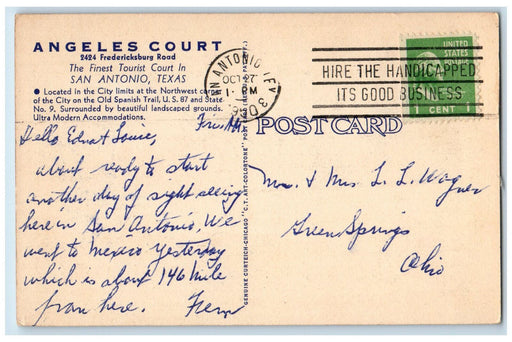 ANGELES COURT
2424 Fredericksburg Road
The Finest Tourist Court In
SAN ANTONIO, TEXAS
● Located in the City limits at the Northwest corner
of the City on the Old Spanish Trail, U. S. 87 and State
No. 9. Surrounded by beautiful landscaped grounds.
Ultra Modern Accommodations.
SAN ANTONIO, TEX
OCT 27
1 - PM
HIRE THE HANDICAPPED
ITS GOOD BUSINESS
UNITED
STATES
1 CENT 1
POST CARD
GENUINE CURTEICH-CHICAGO "C.T. ART-COLORTONE" POST CARD
Hello Edna & Louie,
about ready to start
another day of sight seeing
here in San Antonio. We
went to Mexico yesterday
which is about 146 mile
from here. Fern
Mr. & Mrs. L. L. Wagner
Green Springs
Ohio